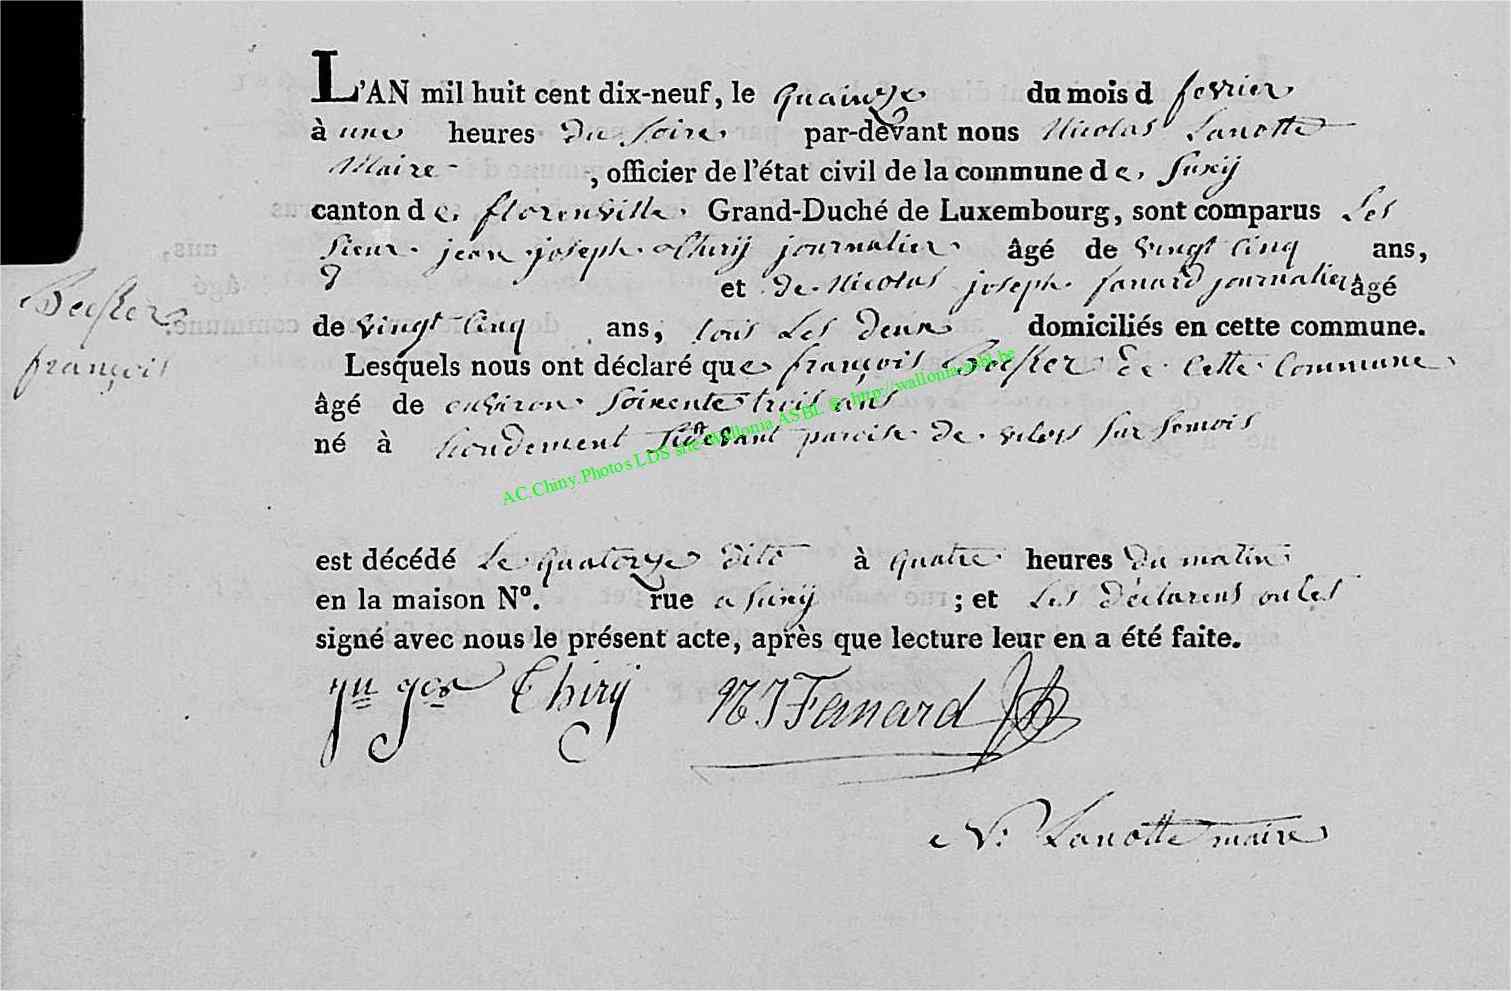 L'AN mil huit cent dix-neuf, le quainze du mois d fevrier
à une heures Du soire par-devant nous Nicolas Lanotte
Maire , officier de l'état civil de la commune d e Suxÿ
canton d e florenville Grand-Duché de Luxembourg, sont comparus Les
Sieur jean joseph Thirÿ journalier âgé de vingt Cinq ans,
et de Nicolas joseph fanard journalier âgé
de vingt Cinq ans, tous Les deux domiciliés en cette commune.
Becker
françois
Lesquels nous ont déclaré que françois Becker De Cette Commune
âgé de environ Soixente trois ans
né à paroise de sur Semois
AC.Chiny.Photos LDS site Wallonia ASBL © http://wallonia-asbl.be
est décédé Le quatorze dito à quatre heures Du matin
en la maison N°. rue a Suxÿ ; et Les déclarens ontes
signé avec nous le présent acte, après que lecture leur en a été faite.
Thirÿ NJ Fanard
N: Lanotte maire